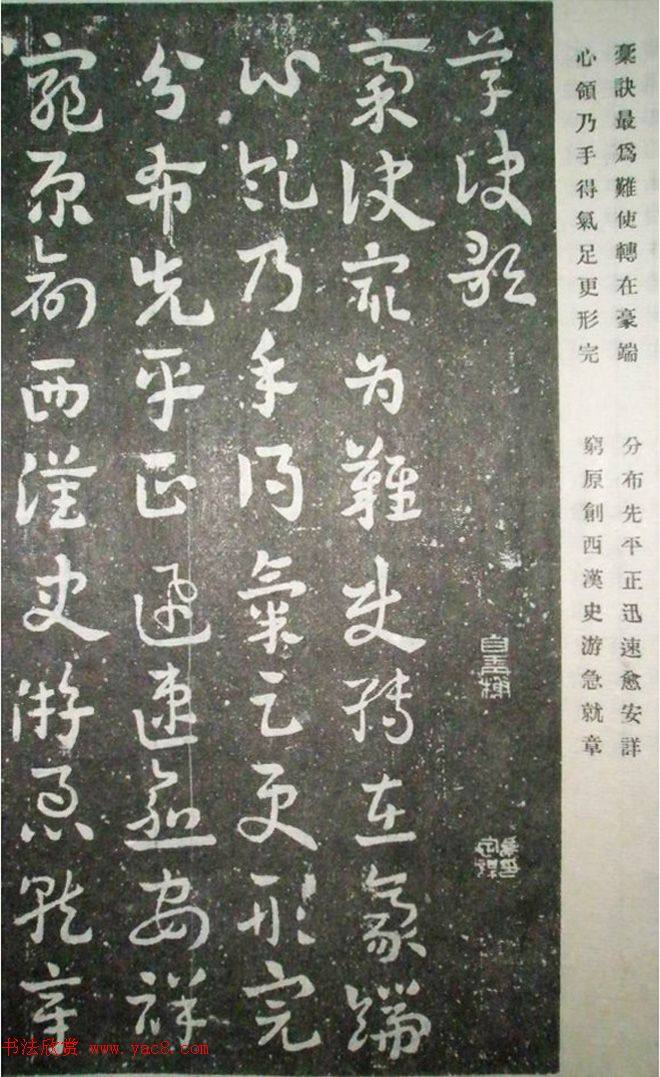 稾訣最爲難使轉在豪端
心領乃手得氣足更形完
分布先平正迅速愈安詳
窮原創西漢史游急就章
草訣歌
稾訣最為難使轉在豪端
心領乃手得氣足更形完
分布先平正迅速愈安詳
窮原創西漢史游急就章
书法欣赏 www.yac8.com